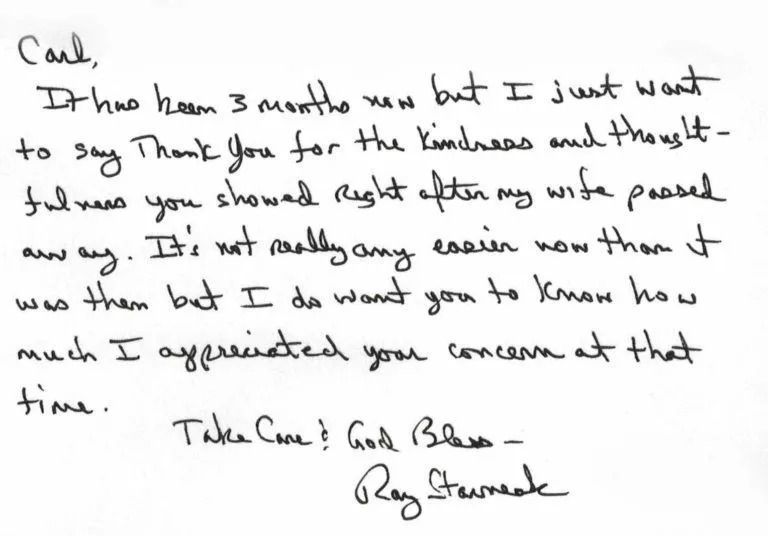 Carl,
It has been 3 months now but I just want
to say Thank You for the kindness and thought-
fulness you showed right after my wife passed
away. It's not really any easier now than it
was then but I do want you to know how
much I appreciated your concern at that
time.
Take Care & God Bless –
Ray